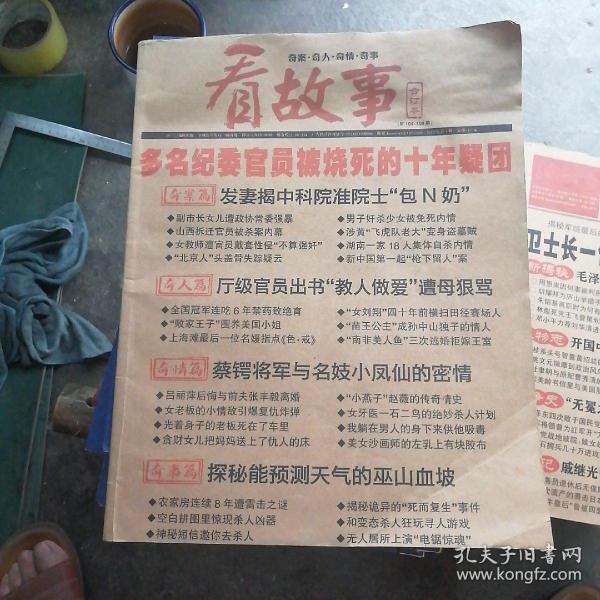 奇案·奇人·奇情·奇事
看故事
合订本
多名纪委官员被烧死的十年疑团
奇案篇 发妻揭中科院准院士“包N奶”
◆副市长女儿遭政协常委强暴
◆山西拆迁官员被杀案内幕
◆女教师遭官员戴套性侵“不算强奸”
◆“北京人”头盖骨失踪疑云
◆男子奸杀少女被免死内情
◆涉黄“飞虎队老大”变身盗墓贼
◆湖南一家18人集体自杀内情
◆新中国第一起“枪下留人”案
奇人篇 厅级官员出书“教人做爱”遭母狠骂
◆全国冠军连吃6年禁药致绝育
◆“败家王子”圈养美国小姐
◆上海滩最后一位名媛指点《色·戒》
◆“女刘翔”四十年前横扫田径赛场人
◆“凿王公主”成孙中山独子的情人
◆“南非美人鱼”三次逃婚拒嫁王室
奇情篇 蔡锷将军与名妓小凤仙的密情
◆吕丽萍后悔与前夫张丰毅离婚
◆女老板的小情敌引爆复仇炸弹
◆光着身子的老板死在了车里
◆贪财女儿把妈妈送上了仇人的床
◆“小燕子”赵薇的传奇情史
◆女牙医一石二鸟的绝妙杀人计划
◆我躺在男人的身下来供他吸毒
◆美女沙画师的左乳上有块胶布
奇事篇 探秘能预测天气的巫山血坡
◆农家房连续8年遭雷击之谜
◆空白拼图里惊现杀人凶器
◆神秘短信邀你去杀人
◆揭秘诡异的“死而复生”事件
◆和变态杀人狂玩寻人游戏
◆无人居所上演“电锯惊魂”
卫士长一
毛泽
开国中
戚继光
孔夫子旧书网
www.kongfz.com